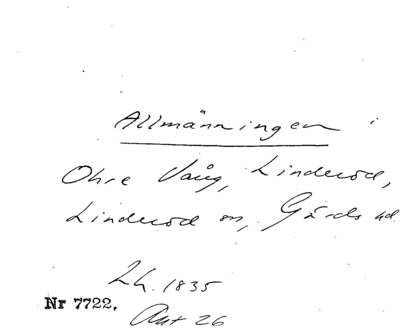 Allmänningen i
Ohre Vång, Linderöd,
Linderöd sn, Gärds hd
Lh. 1835
Nr 7722.
Akt 26